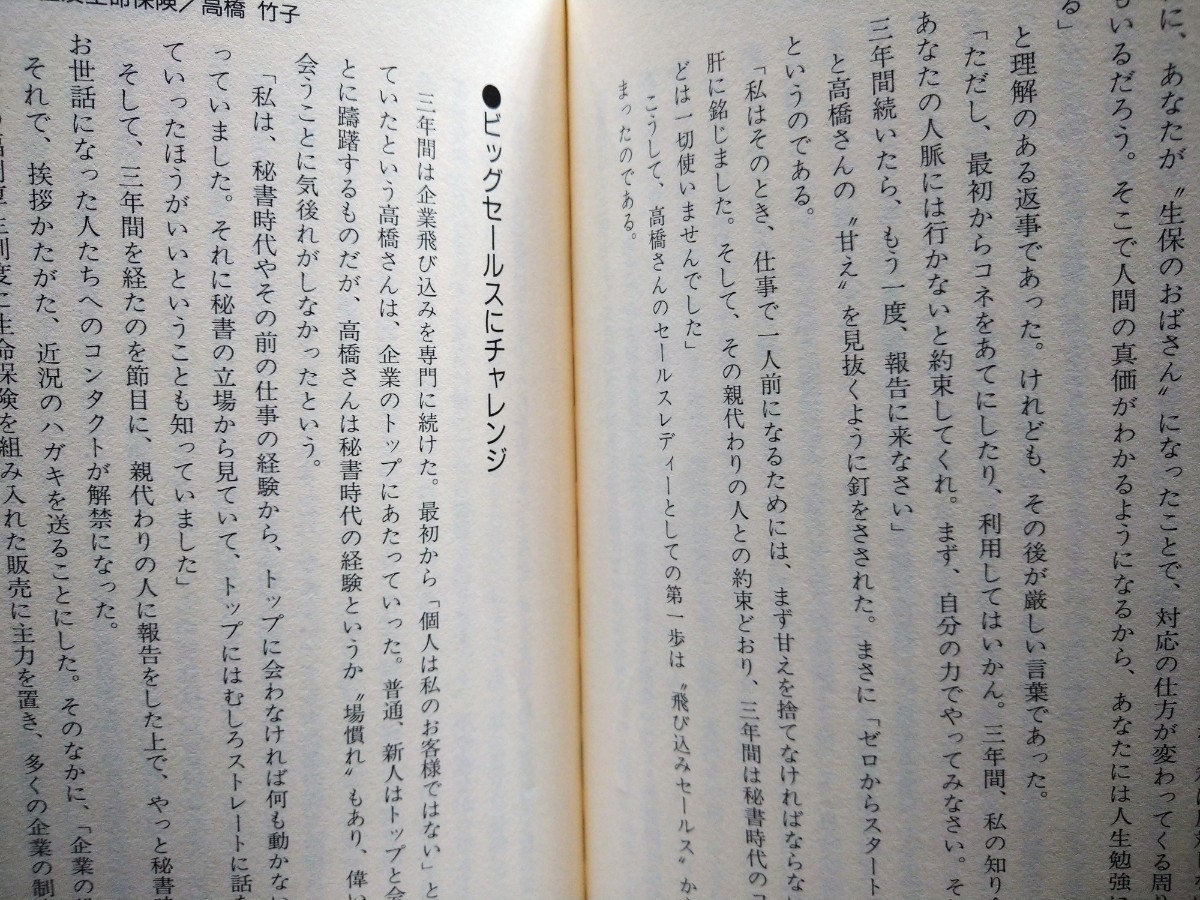 に、あなたが〝生保のおばさん〟になったことで、対応の仕方が変わってくる周り
もいるだろう。そこで人間の真価がわかるようになるから、あなたには人生勉強に
る」
と理解のある返事であった。けれども、その後が厳しい言葉であった。
「ただし、最初からコネをあてにしたり、利用してはいかん。三年間、私の知り
あなたの人脈には行かないと約束してくれ。まず、自分の力でやってみなさい。そ
三年間続いたら、もう一度、報告に来なさい」
と高橋さんの〝甘え〟を見抜くように釘をさされた。まさに「ゼロからスタート
というのである。
「私はそのとき、仕事で一人前になるためには、まず甘えを捨てなければならな
肝に銘じました。そして、その親代わりの人との約束どおり、三年間は秘書時代の「
どは一切使いませんでした」
こうして、高橋さんのセールスレディーとしての第一歩は〝飛び込みセールス〟か
まったのである。
生命保険/高橋 竹子
●ビッグセールスにチャレンジ
三年間は企業飛び込みを専門に続けた。最初から「個人は私のお客様ではない」と
ていたという高橋さんは、企業のトップにあたっていった。普通、新人はトップと会
とに躊躇するものだが、高橋さんは秘書時代の経験というか〝場慣れ〟もあり、偉い
会うことに気後れがしなかったという。
「私は、秘書時代やその前の仕事の経験から、トップに会わなければ何も動かない
っていました。それに秘書の立場から見ていて、トップにはむしろストレートに話を
ていったほうがいいということも知っていました」
そして、三年間を経たのを節目に、親代わりの人に報告をした上で、やっと秘書時
お世話になった人たちへのコンタクトが解禁になった。
それで、挨拶かたがた、近況のハガキを送ることにした。そのなかに、「企業の
制度に生命保険を組み入れた販売に主力を置き、多くの企業の制